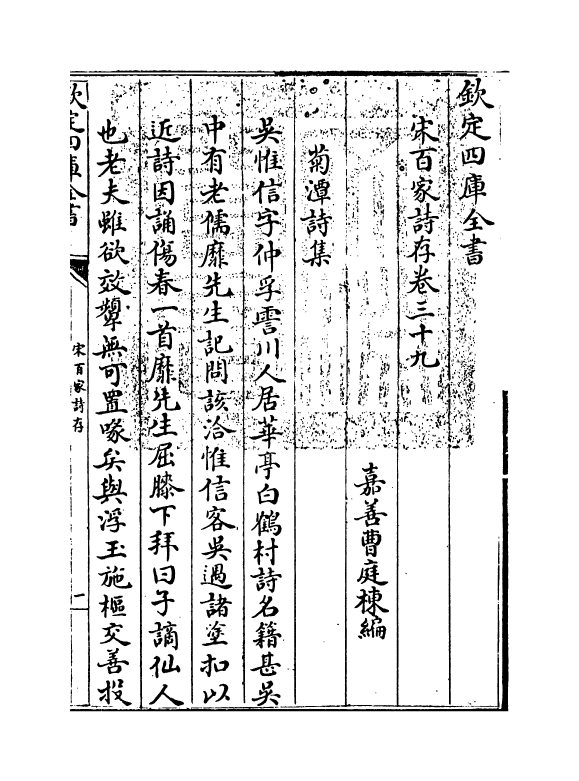 欽定四庫全書
宋百家詩存卷三十九
嘉善曹庭棟編
菊潭詩集
吳惟信字仲孚霅川人居華亭白鶴村詩名籍甚吳
中有老儒靡先生記問該洽惟信客吳遇諸塗扣以
近詩因誦傷春一首靡先生屈膝下拜曰子謫仙人
也老夫雖欲效顰無可置喙矣與浮玉施樞交善投
欽定四庫全書
宋百家詩存
一